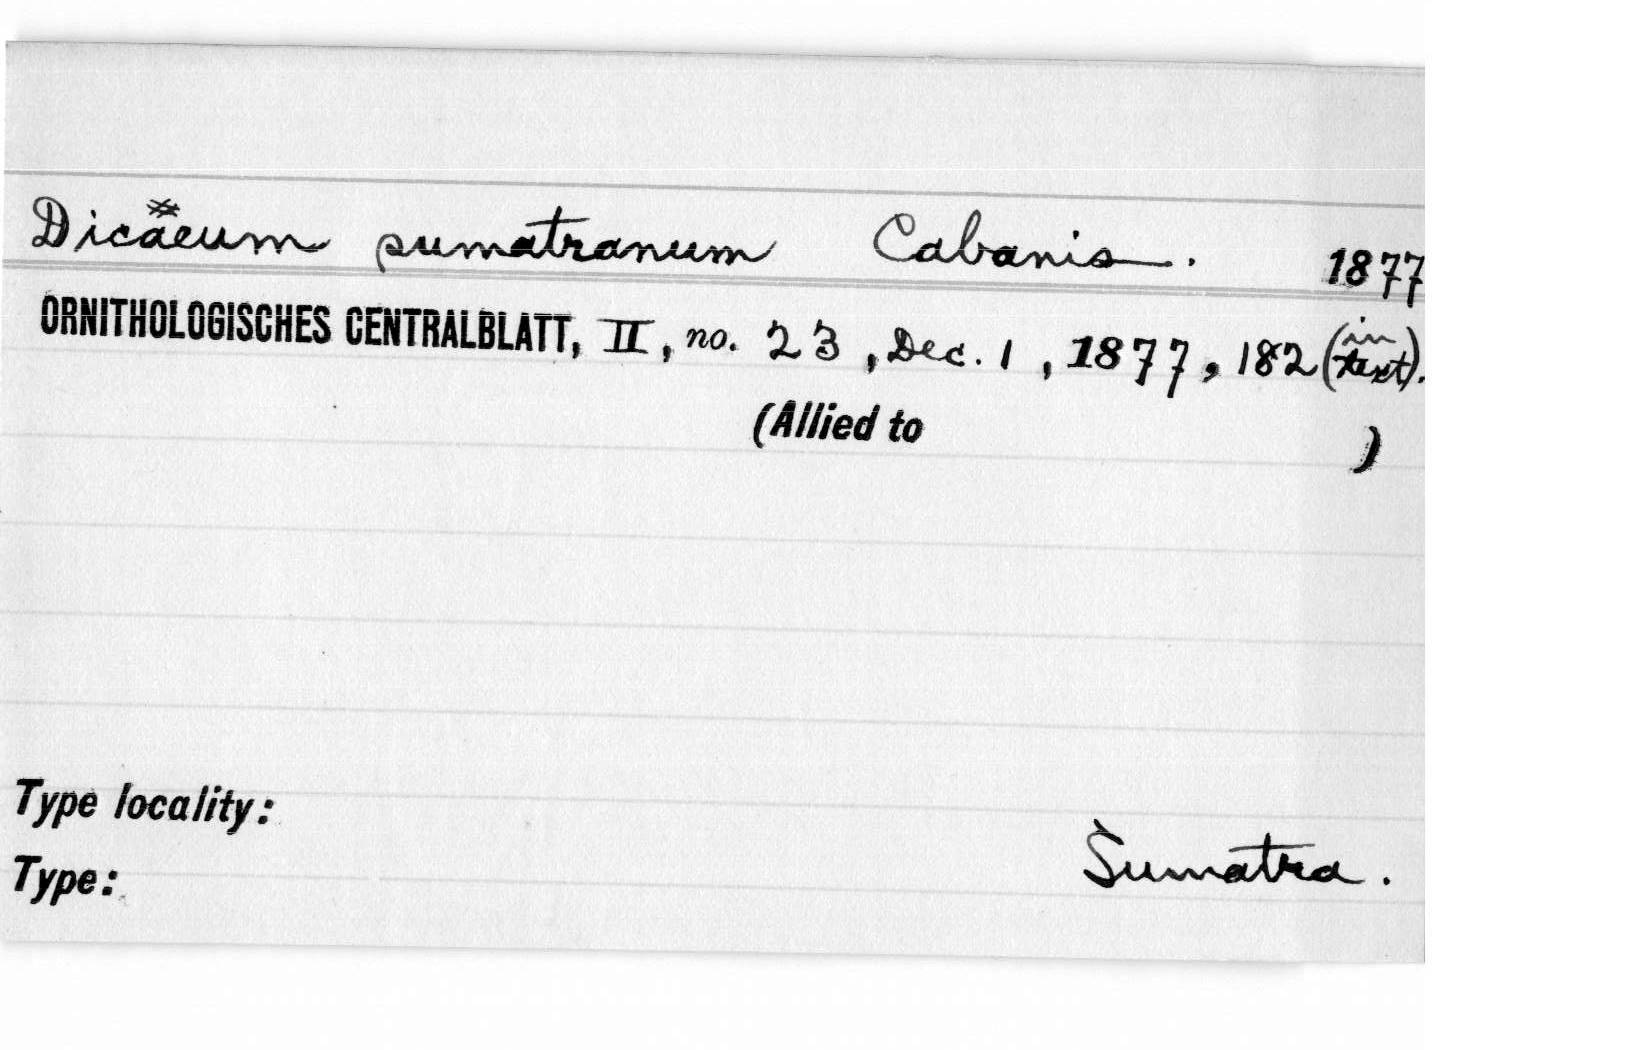 Dicaeum sumatranum Cabanis. 1877
ORNITHOLOGISCHES CENTRALBLATT, II, no. 23, Dec. 1, 1877, 182 (in text).
(Allied to )
Type locality:
Sumatra.
Type: